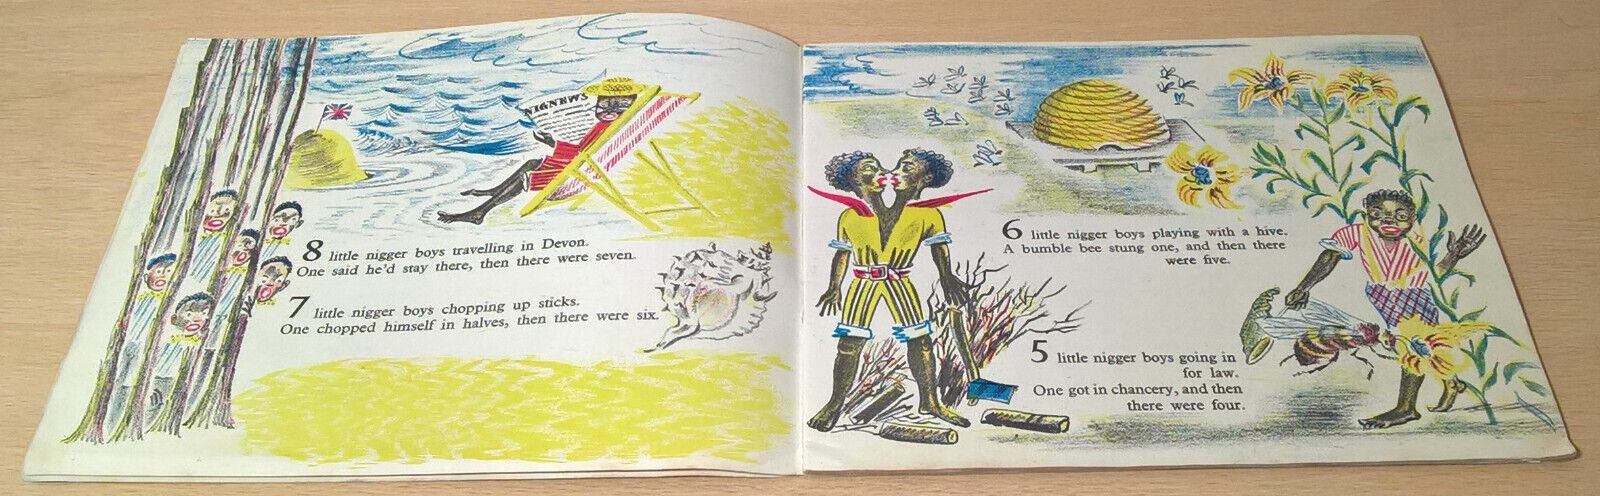 NIGNEWS
8 little nigger boys travelling in Devon.
One said he'd stay there, then there were seven.
7 little nigger boys chopping up sticks.
One chopped himself in halves, then there were six.
6 little nigger boys playing with a hive.
A bumble bee stung one, and then there
were five.
5 little nigger boys going in
for law.
One got in chancery, and then
there were four.